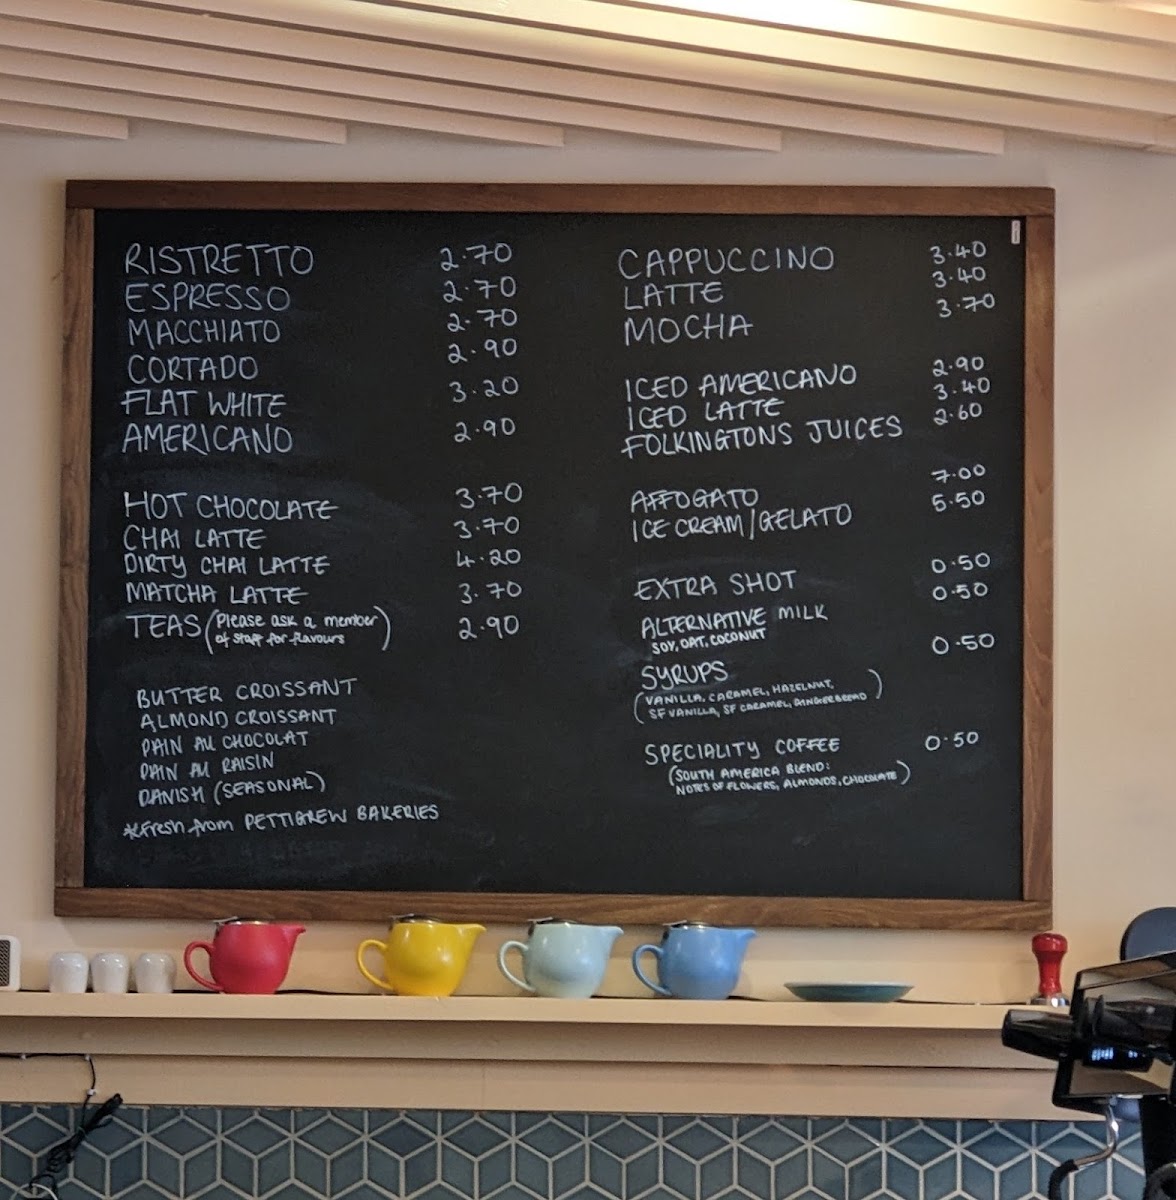 RISTRETTO 2.70
ESPRESSO 2.70
MACCHIATO 2.70
CORTADO 2.90
FLAT WHITE 3.20
AMERICANO 2.90
HOT CHOCOLATE 3.70
CHAI LATTE 3.70
DIRTY CHAI LATTE 4.20
MATCHA LATTE 3.70
TEAS (Please ask a member 2.90
of staff for flavours)
BUTTER CROISSANT
ALMOND CROISSANT
PAIN AU CHOCOLAT
PAIN AU RAISIN
DANISH (SEASONAL)
*Fresh from PETTIGREW BAKERIES
CAPPUCCINO 3.40
LATTE 3.40
MOCHA 3.70
ICED AMERICANO 2.90
ICED LATTE 3.40
FOLKINGTONS JUICES 2.60
AFFOGATO 7.00
ICE CREAM/GELATO 5.50
EXTRA SHOT 0.50
ALTERNATIVE MILK 0.50
SOY, OAT, COCONUT
SYRUPS 0.50
(VANILLA, CARAMEL, HAZELNUT,
SF VANILLA, SF CARAMEL, GINGERBREAD)
SPECIALITY COFFEE 0.50
(SOUTH AMERICA BLEND:
NOTES OF FLOWERS, ALMONDS, CHOCOLATE)